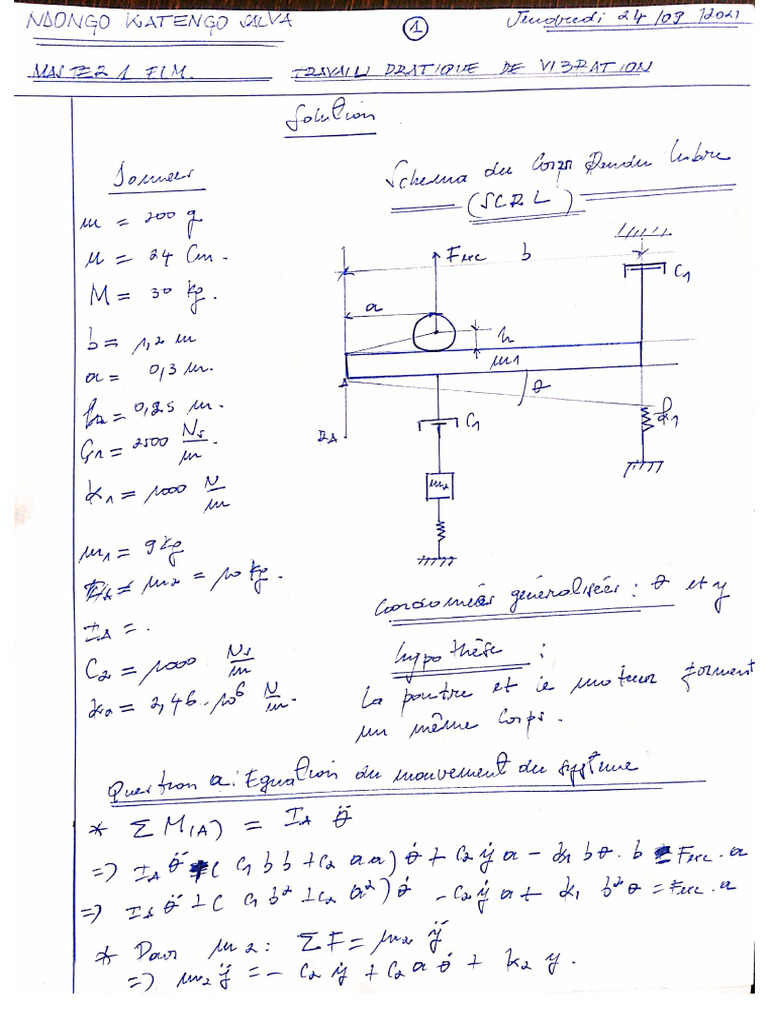 NDONGO KATENGO SALVA
1
Vendredi 24/09/2021
MASTER 1 ELM.
TRAVAIL PRATIQUE DE VIBRATION
Solution
Données
Schema du Corps Rendu Libre
(SCRL)
m = 200 g
= 24 Cm.
M = 30 kg.
b = 1,2 m
a = 0,3 m.
= 0,25 m.
C1 = 2500 Ns/m
k1 = 1000 N/m
m1 = 9 kg
m2 = 10 kg.
IA = .
C2 = 1000 Ns/m
k2 = 2,46 . 10^6 N/m.
Fexc
b
C1
a
h
m1
θ
C1
k1
m2
Coordonnées généralisées : θ et y
hypothèse :
La poutre et le moteur forment
un même Corps.
Question a : Equation du mouvement du système
* ΣM(A) = IA θ̈
=) IA θ̈ + ( C1 b b + C2 a a ) θ̇ + C2 ẏ a - k1 b θ . b Fexc . a
=) IA θ̈ + ( C1 b² + C2 a² ) θ̇ - C2 ẏ a + k1 b² θ = Fexc . a
* Pour m2 : ΣF = m2 ÿ
=) m2 ÿ = - C2 ẏ + C2 a θ̇ + k2 y .